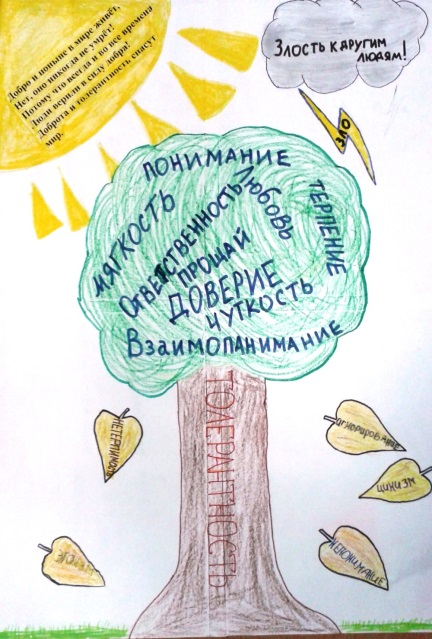 Добро и поныне в мире живёт,
Нет, оно никогда не умрёт!
Потому что всегда и во все времена
Люди верили в силу добра!
Доброта и толерантность спасут
мир.
Злость к другим
людям!
зло
понимание
Любовь
терпение
мягкость
Ответственность
прощай
Доверие
чуткость
Взаимопанимание
толерантность
нетерпимость
игнорирование
цинизм
непонимание
эгоизм